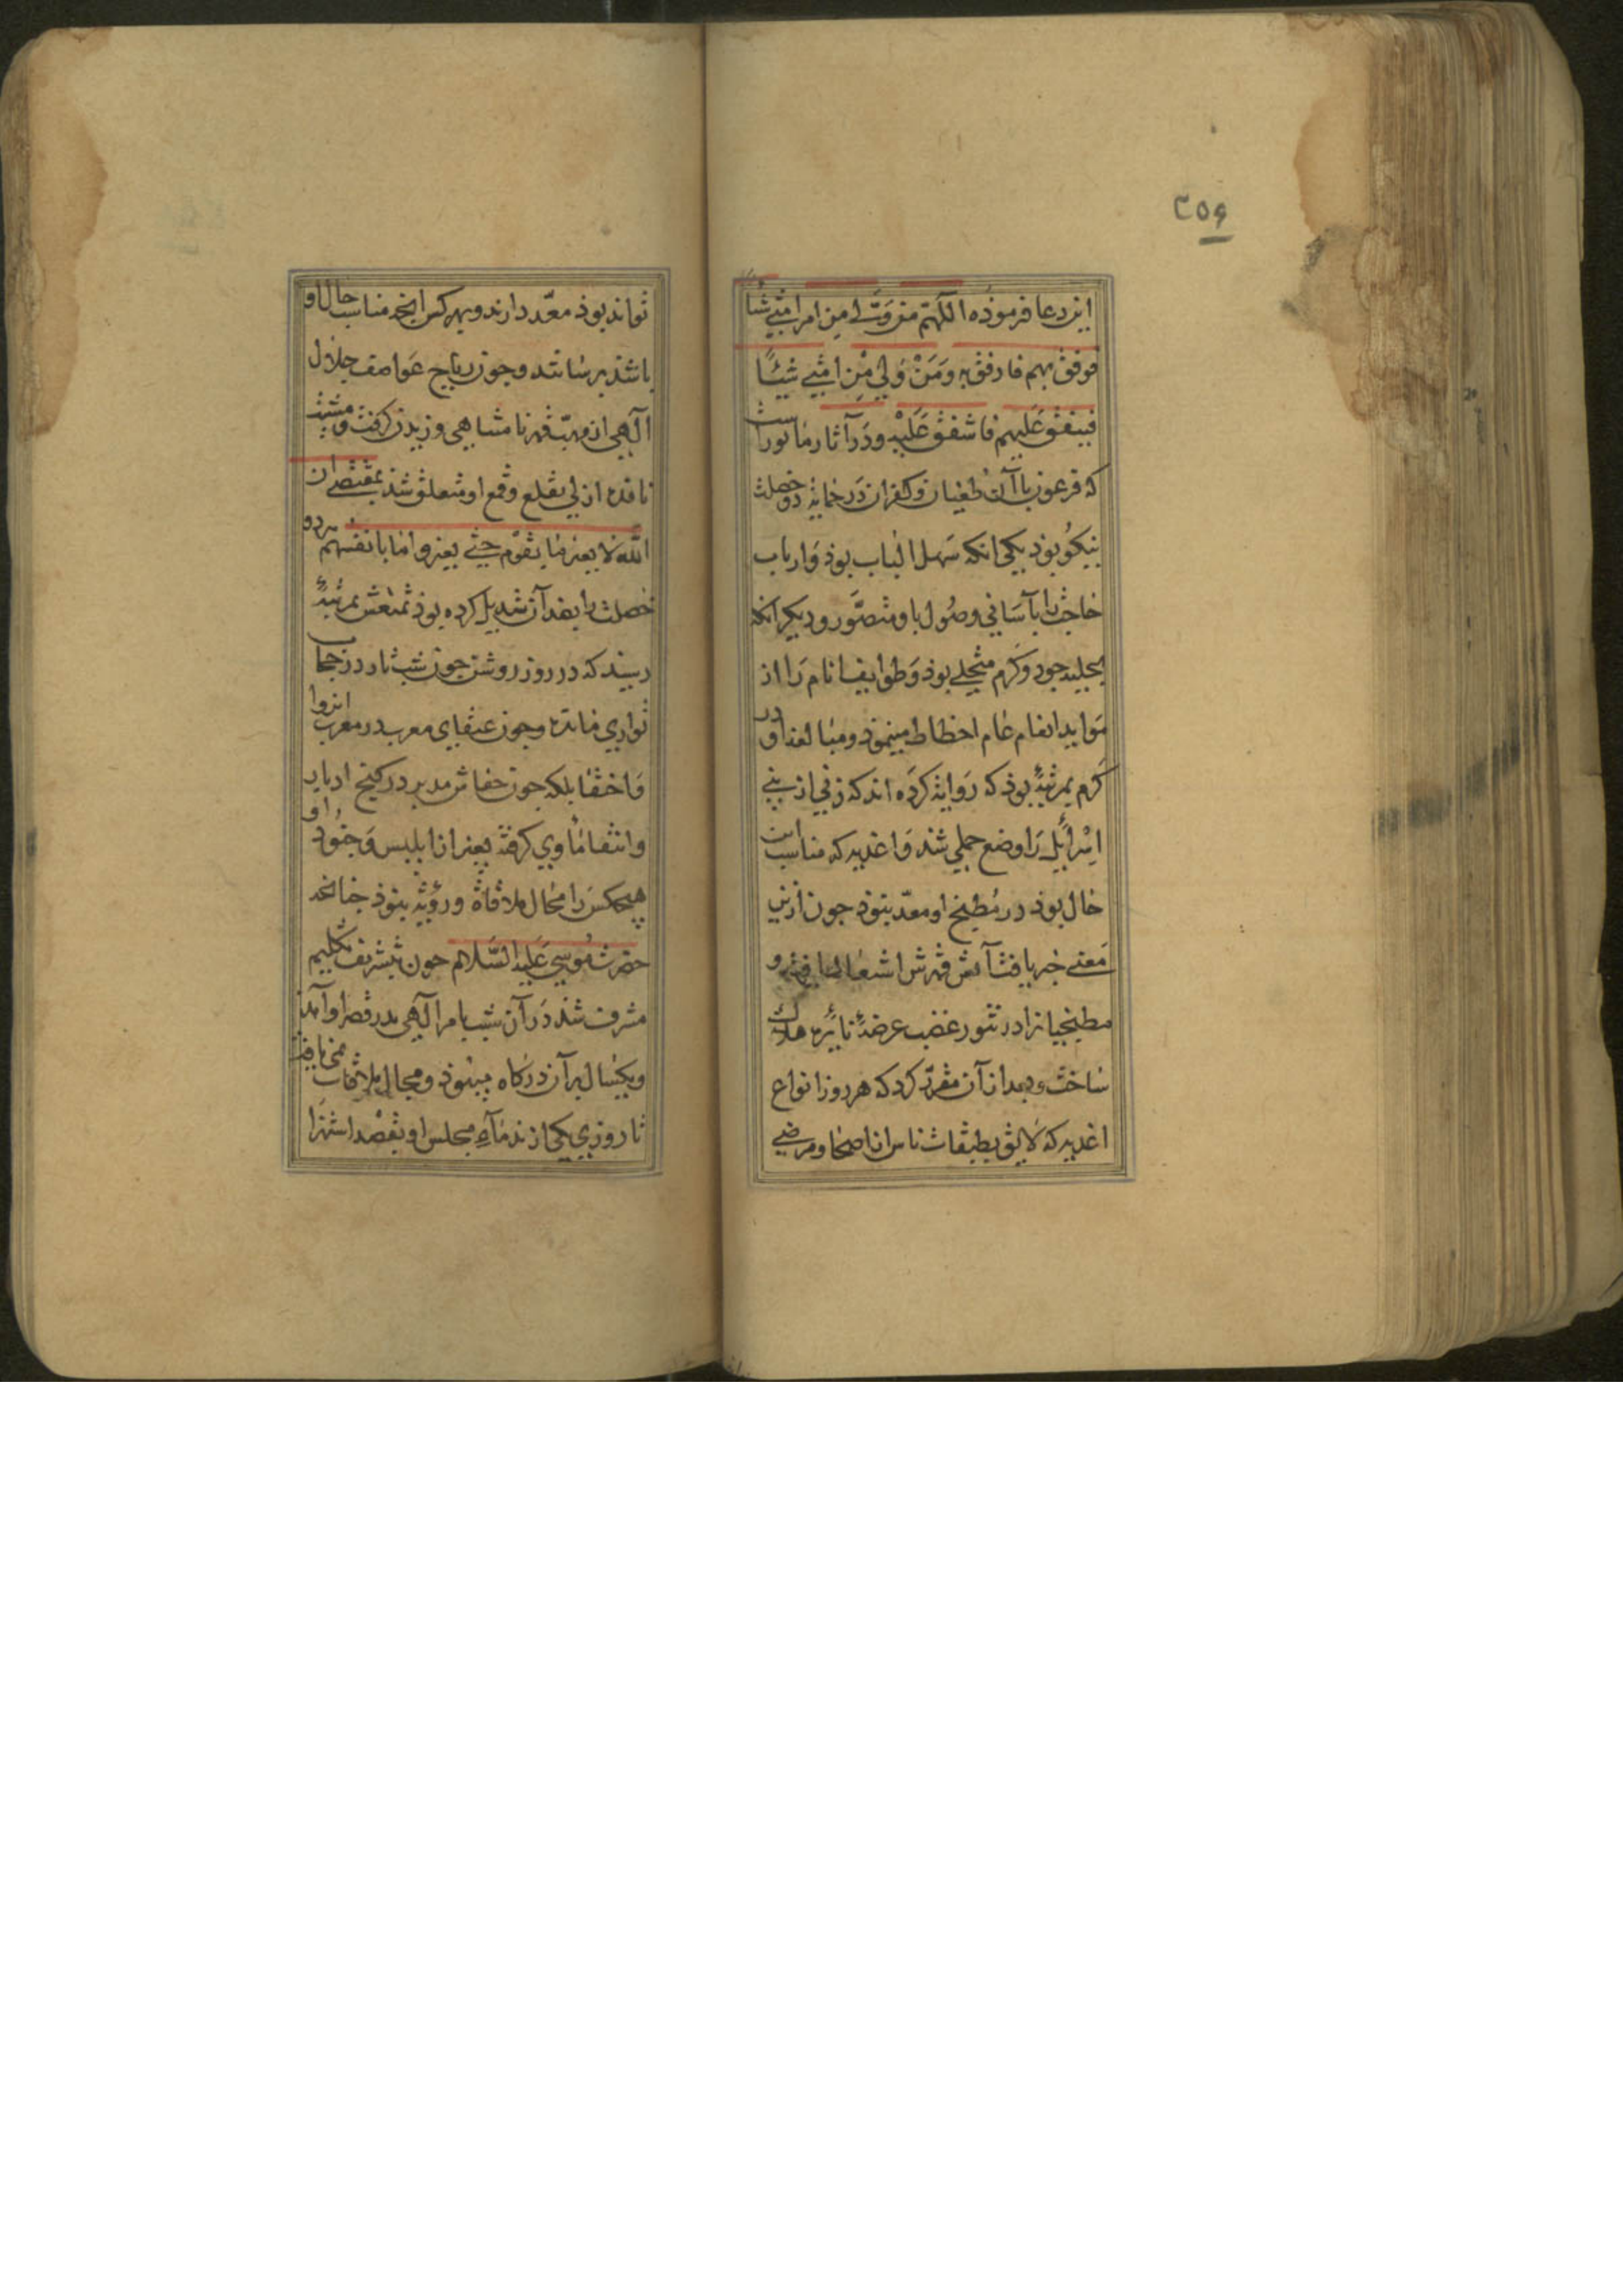 ۲۵۶
این دعا فرموذه اللّهم من ولّی من امر امتی شیئا
فرفق بهم فارفق به وَمَنْ وَلِیَ مِن امتی شیئًا
فیشقق عَلَیهم فاشقق عَلَیْهِ ودَر آثار مأثوراست
که فرعون باآن طغیان وکفران دَر غایة دو خصلت
نیکو بوذ یکی انکه سَهل الباب بوذ وَارباب
حاجت را بآسَانی وصُول باو متصَّور ودیکر انکه
بحلیه جود وکَرم متحلی بوذ وَطوایف انام رَا از
مَواید انعام عام احظاط مینموذ ومبالغه او در
کَرم بمرتبهٔ بوذ که رَوایة کرَده اند که زنی از بنی
اِسْرائیل رَا وضع حملی شد وَاغذیه که مناسب این
حال بوذ در مُطبخ او معدّ نبوذ جون ازین
مَعنی خبر یافت آتش قهرش اشتعال یافته و
مطبخیانرا در تنور غضب عرضهٔ نائرهٔ هلاک
ساخت وبعد ازآن مقرّر کرد که هر روز انواع
اغذیه که لَایق بطبقات ناس از اصحا ومرضی
تواند بوذ معدّ دارند وبهر کس انجه مناسب حال او
باشد برسانند وجون ریاح عَواصف جلال
آلهی از مهبّ قهر نامتناهی وزیدن کرفت ومشیت
نافذه ازلی بقلع وقمع او متعلق شد بمقتضی ان
اللّه لا یغیر مَا بقوْم حَتی یغیروا مَا بانفسهم هردو
خصلت را بضد آن تبدیل کرده بوذ تمنعش بمرتبهٔ
رسید که در روز روشن جون شب تار در حجاب
تواری مانده وجون عنقای مغرب در مغرب انزوا
وَاختفا بلکه جون خفاش مدبر در کنج ادبار
وانتقام مأوی کرفته بغیر از ابلیس وَجنود او
هیجکس رَا مجال ملاقاة ورؤیة نبوذ جنانجه
حضرت مُوسی عَلَیه السَّلام جون بتشریف تکلیم
مشرف شذ دَر آن شب بامر آلهی بدر قصر او آمد
ویکسال بر آن درکاه میبوذ ومجال ملاقات نمی یافت
تا روزی یکی از ندمَآءِ مجلس او بقصْد استهزا